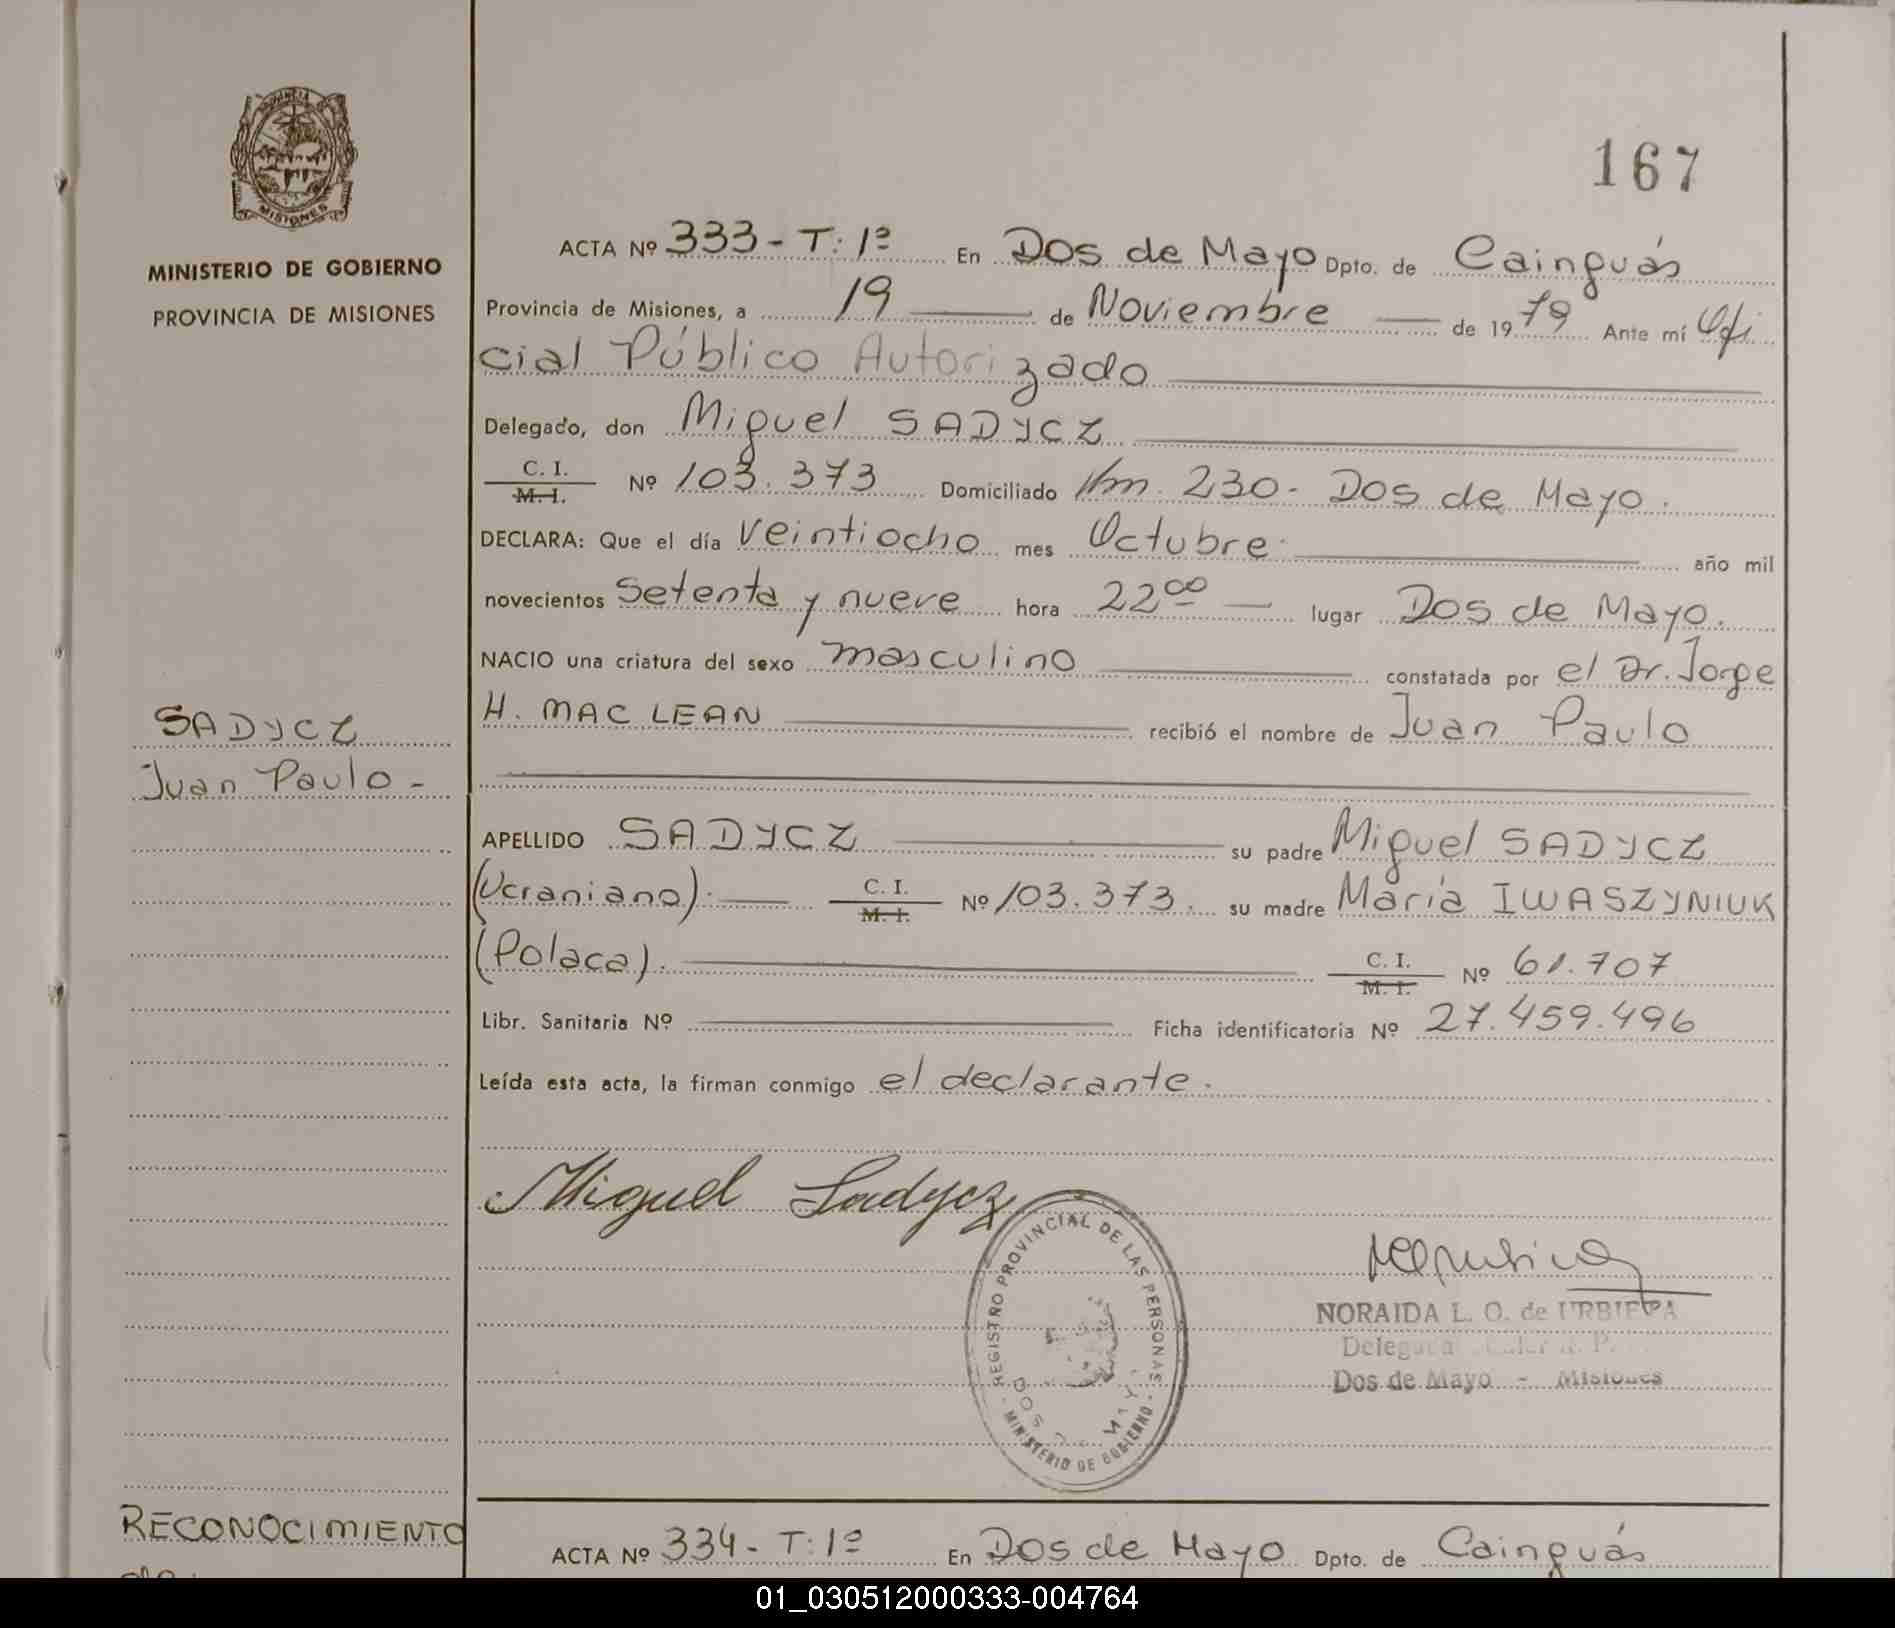 PROVINCIA DE
MISIONES
MINISTERIO DE GOBIERNO
PROVINCIA DE MISIONES
167
ACTA Nº 333 - T: 1º En Dos de Mayo Dpto. de Cainguás
Provincia de Misiones, a 19 de Noviembre de 1979 Ante mí Ofi
cial Público Autorizado
Delegado, don Miguel SADYCZ
C. I. M. I. Nº 103.373 Domiciliado Km. 230 - Dos de Mayo.
DECLARA: Que el día veintiocho mes Octubre año mil
novecientos setenta y nueve hora 22⁰⁰ lugar Dos de Mayo.
NACIO una criatura del sexo masculino constatada por el Dr. Jorge
H. MAC LEAN recibió el nombre de Juan Paulo
SADYCZ
Juan Paulo -
APELLIDO SADYCZ su padre Miguel SADYCZ
(Ucraniano). C. I. M. I. Nº 103.373. su madre María IWASZYNIUK
(Polaca). C. I. M. I. Nº 61.707
Libr. Sanitaria Nº Ficha identificatoria Nº 27.459.496
Leída esta acta, la firman conmigo el declarante.
Miguel Sadycz
REGISTRO PROVINCIAL DE LAS PERSONAS
DOS DE MAYO
- MINISTERIO DE GOBIERNO -
NORAIDA L. O. de URBIETA
Dos de Mayo - Misiones
RECONOCIMIENTO
de
ACTA Nº 334 - T: 1º En Dos de Mayo Dpto. de Cainguás
01_030512000333-004764